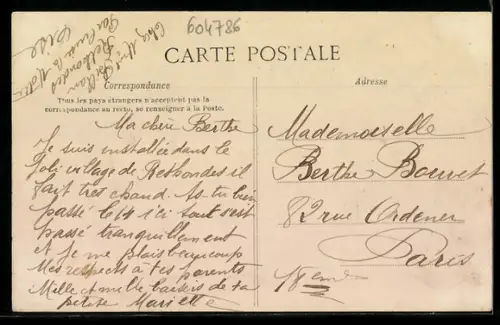 604786
Chez Mme
Rethondes
Par Cuise la Motte
Oise
CARTE POSTALE
Correspondance
Tous les pays étrangers n'acceptent pas la
correspondance au recto, se renseigner à la Poste.
Ma chère Berthe
Je suis installée dans le
joli village de Rethondes il
fait tres chaud. As-tu bien
passé le 14 ici tout s'est
passé tranquillement
et je me plais beaucoup
Mes respects à tes parents
Mille et mille baisers de ta
petite Mariette
Adresse
Mademoiselle
Berthe Bouvet
82 rue Ordener
Paris
18eme